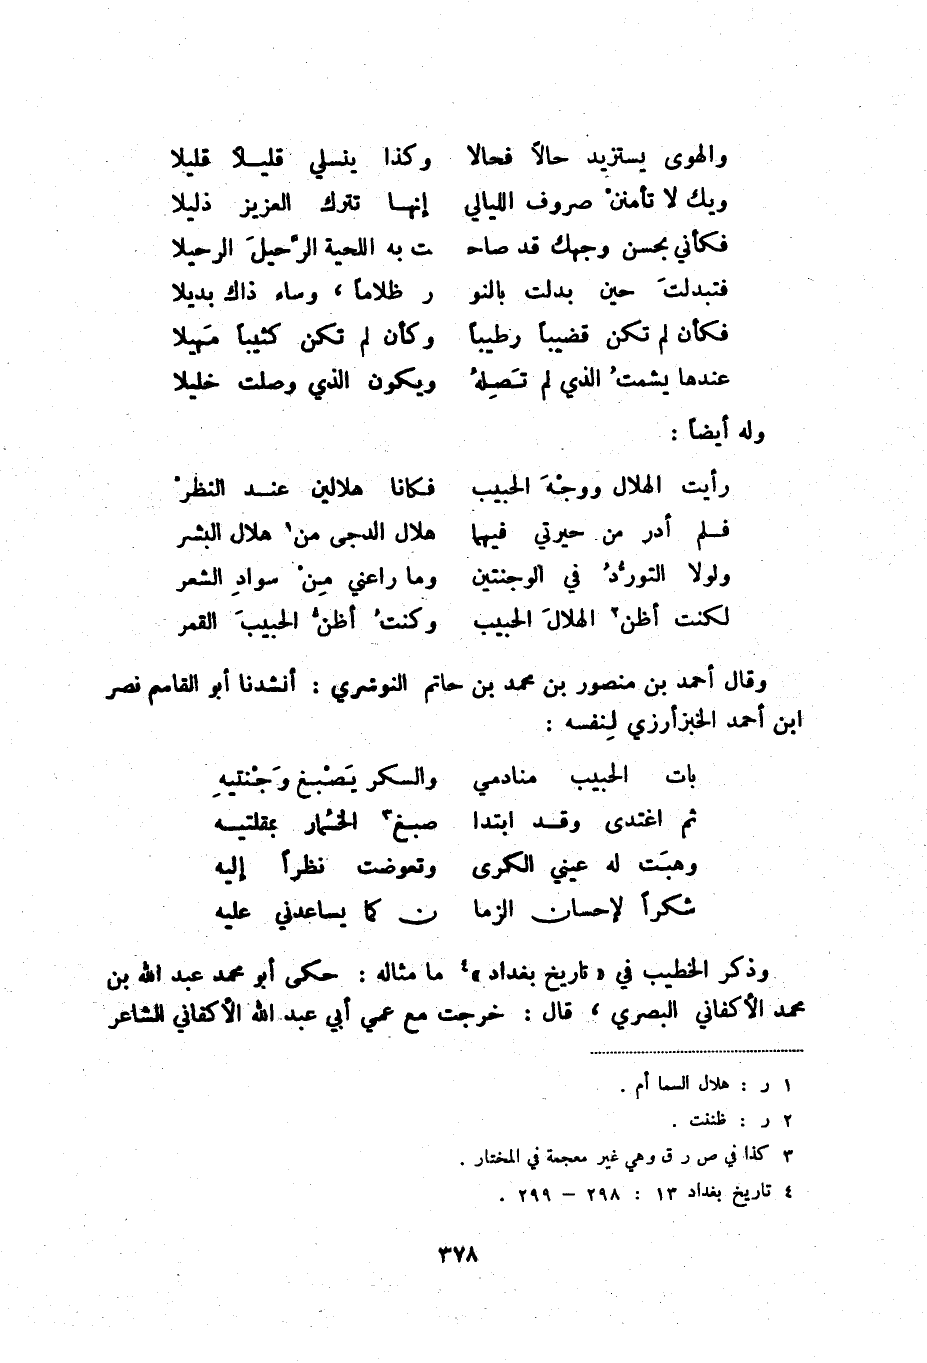 والهوى يستزيد حالاً فحالا وكذا ينسلي قليلاً قليلا
ويك لا تأمننْ صروف الليالي إنها تترك العزيز ذليلا
فكأني بحسن وجهك قد صاحـ ـت به اللحية الرَّحيلَ الرحيلا
فتبدلتَ حين بدلت بالنو ر ظلاماً ، وساء ذاك بديلا
فكأن لم تكن قضيباً رطيباً وكأن لم تكن كثيباً مَهيلا
عندها يشمتُ الذي لم تَصِلهُ ويكون الذي وصلت خليلا
وله أيضاً :
رأيت الهلال ووجْهَ الحبيب فكانا هلالين عند النظرْ
فلم أدر من حيرتي فيهما هلال الدجى من١ هلال البشر
ولولا التورُّدُ في الوجنتين وما راعني مِنْ سوادِ الشعر
لكنت أظن٢ الهلالَ الحبيب وكنتُ أظنُّ الحبيبَ القمر
وقال أحمد بن منصور بن محمد بن حاتم النوشري : أنشدنا أبو القاسم نصر
ابن أحمد الخبزأرزي لِنفسه :
بات الحبيب منادمي والسكر يَصْبغ وَجْنتيهِ
ثم اغتدى وقد ابتدا صبغ٣ الخُمار بمقلتيه
وهبَت له عيني الكرى وتعوضت نظراً إليه
شكراً لإحسان الزما ن كما يساعدني عليه
وذكر الخطيب في « تاريخ بغداد »٤ ما مثاله : حكى أبو محمد عبد الله بن
محمد الأكفاني البصري ، قال : خرجت مع عمي أبي عبد الله الأكفاني الشاعر
١ ر : هلال السما أم .
٢ ر : ظننت .
٣ كذا في ص ر ق وهي غير معجمة في المختار .
٤ تاريخ بغداد ١٣ : ٢٩٨ – ٢٩٩ .
٣٧٨